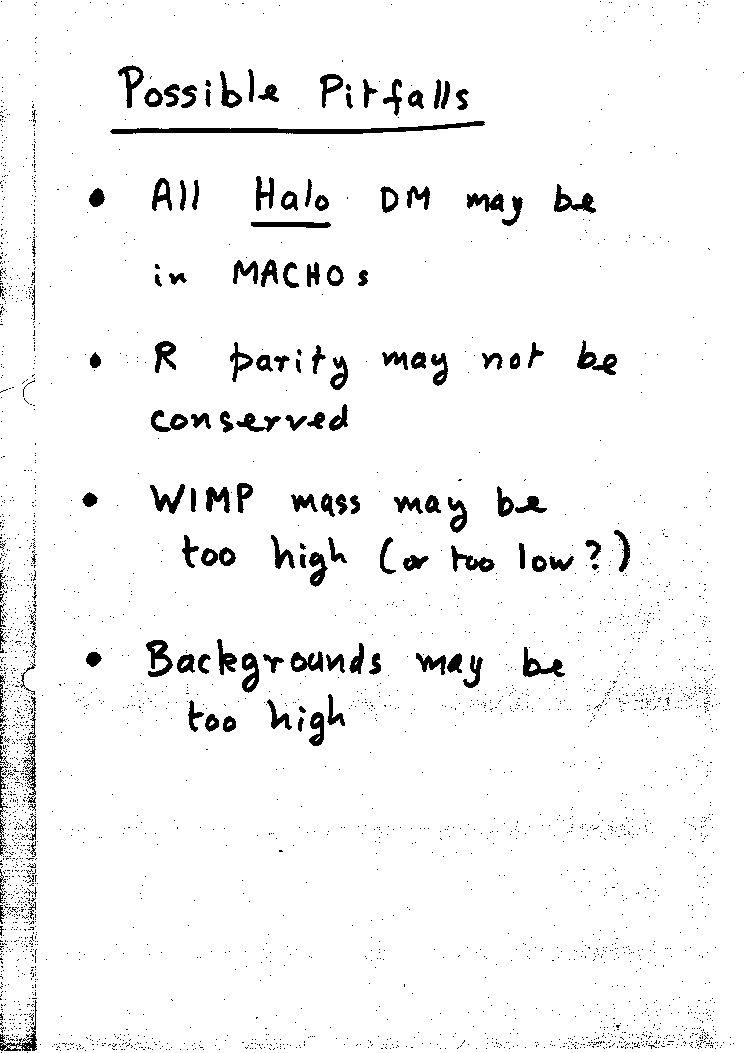 Possible Pitfalls
• All Halo DM may be
in MACHOs
• R parity may not be
conserved
• WIMP mass may be
too high (or too low?)
• Backgrounds may be
too high